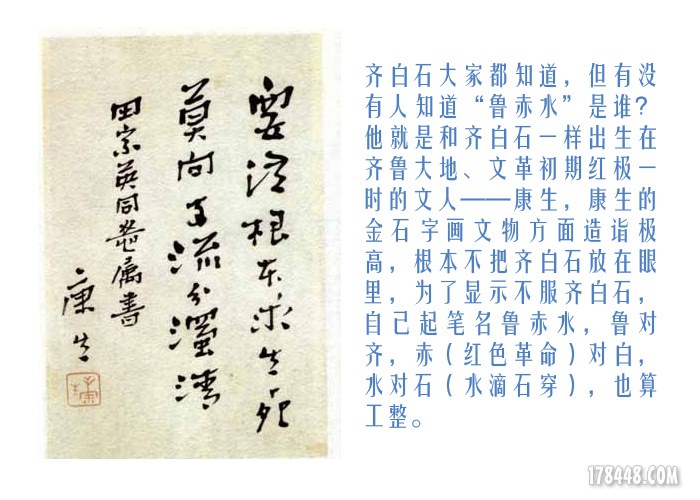 要 根本求生死
莫向支流分濁清
田家英同志属書
康生
齐白石大家都知道，但有没
有人知道“鲁赤水”是谁？
他就是和齐白石一样出生在
齐鲁大地、文革初期红极一
时的文人——康生，康生的
金石字画文物方面造诣极
高，根本不把齐白石放在眼
里，为了显示不服齐白石，
自己起笔名鲁赤水，鲁对
齐，赤（红色革命）对白，
水对石（水滴石穿），也算
工整。
178448.com